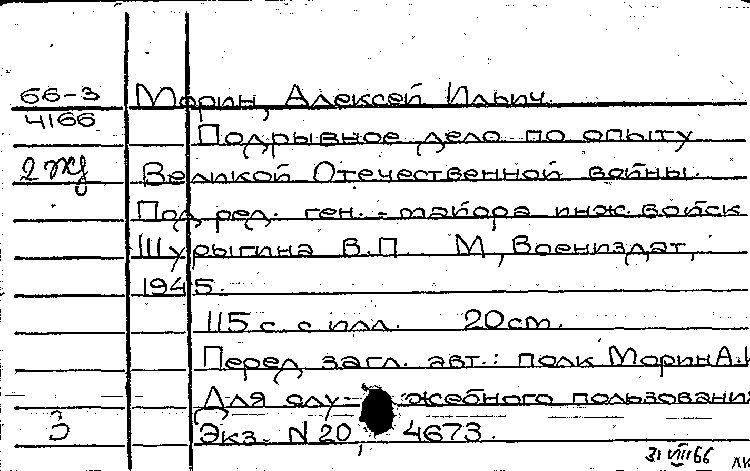 66-3 Морин, Алексей Ильич.
4166
Подрывное дело по опыту
2 жд Великой Отечественной войны.
Под ред. ген.-майора инж. войск
Шурыгина В.П. М, Воениздат,
1945.
115 с. с илл. 20 см.
Перед загл. авт.: полк Морин А.И
Для слу- жебного пользовани
3 Экз. N 20, 4673.
31 VIII 66